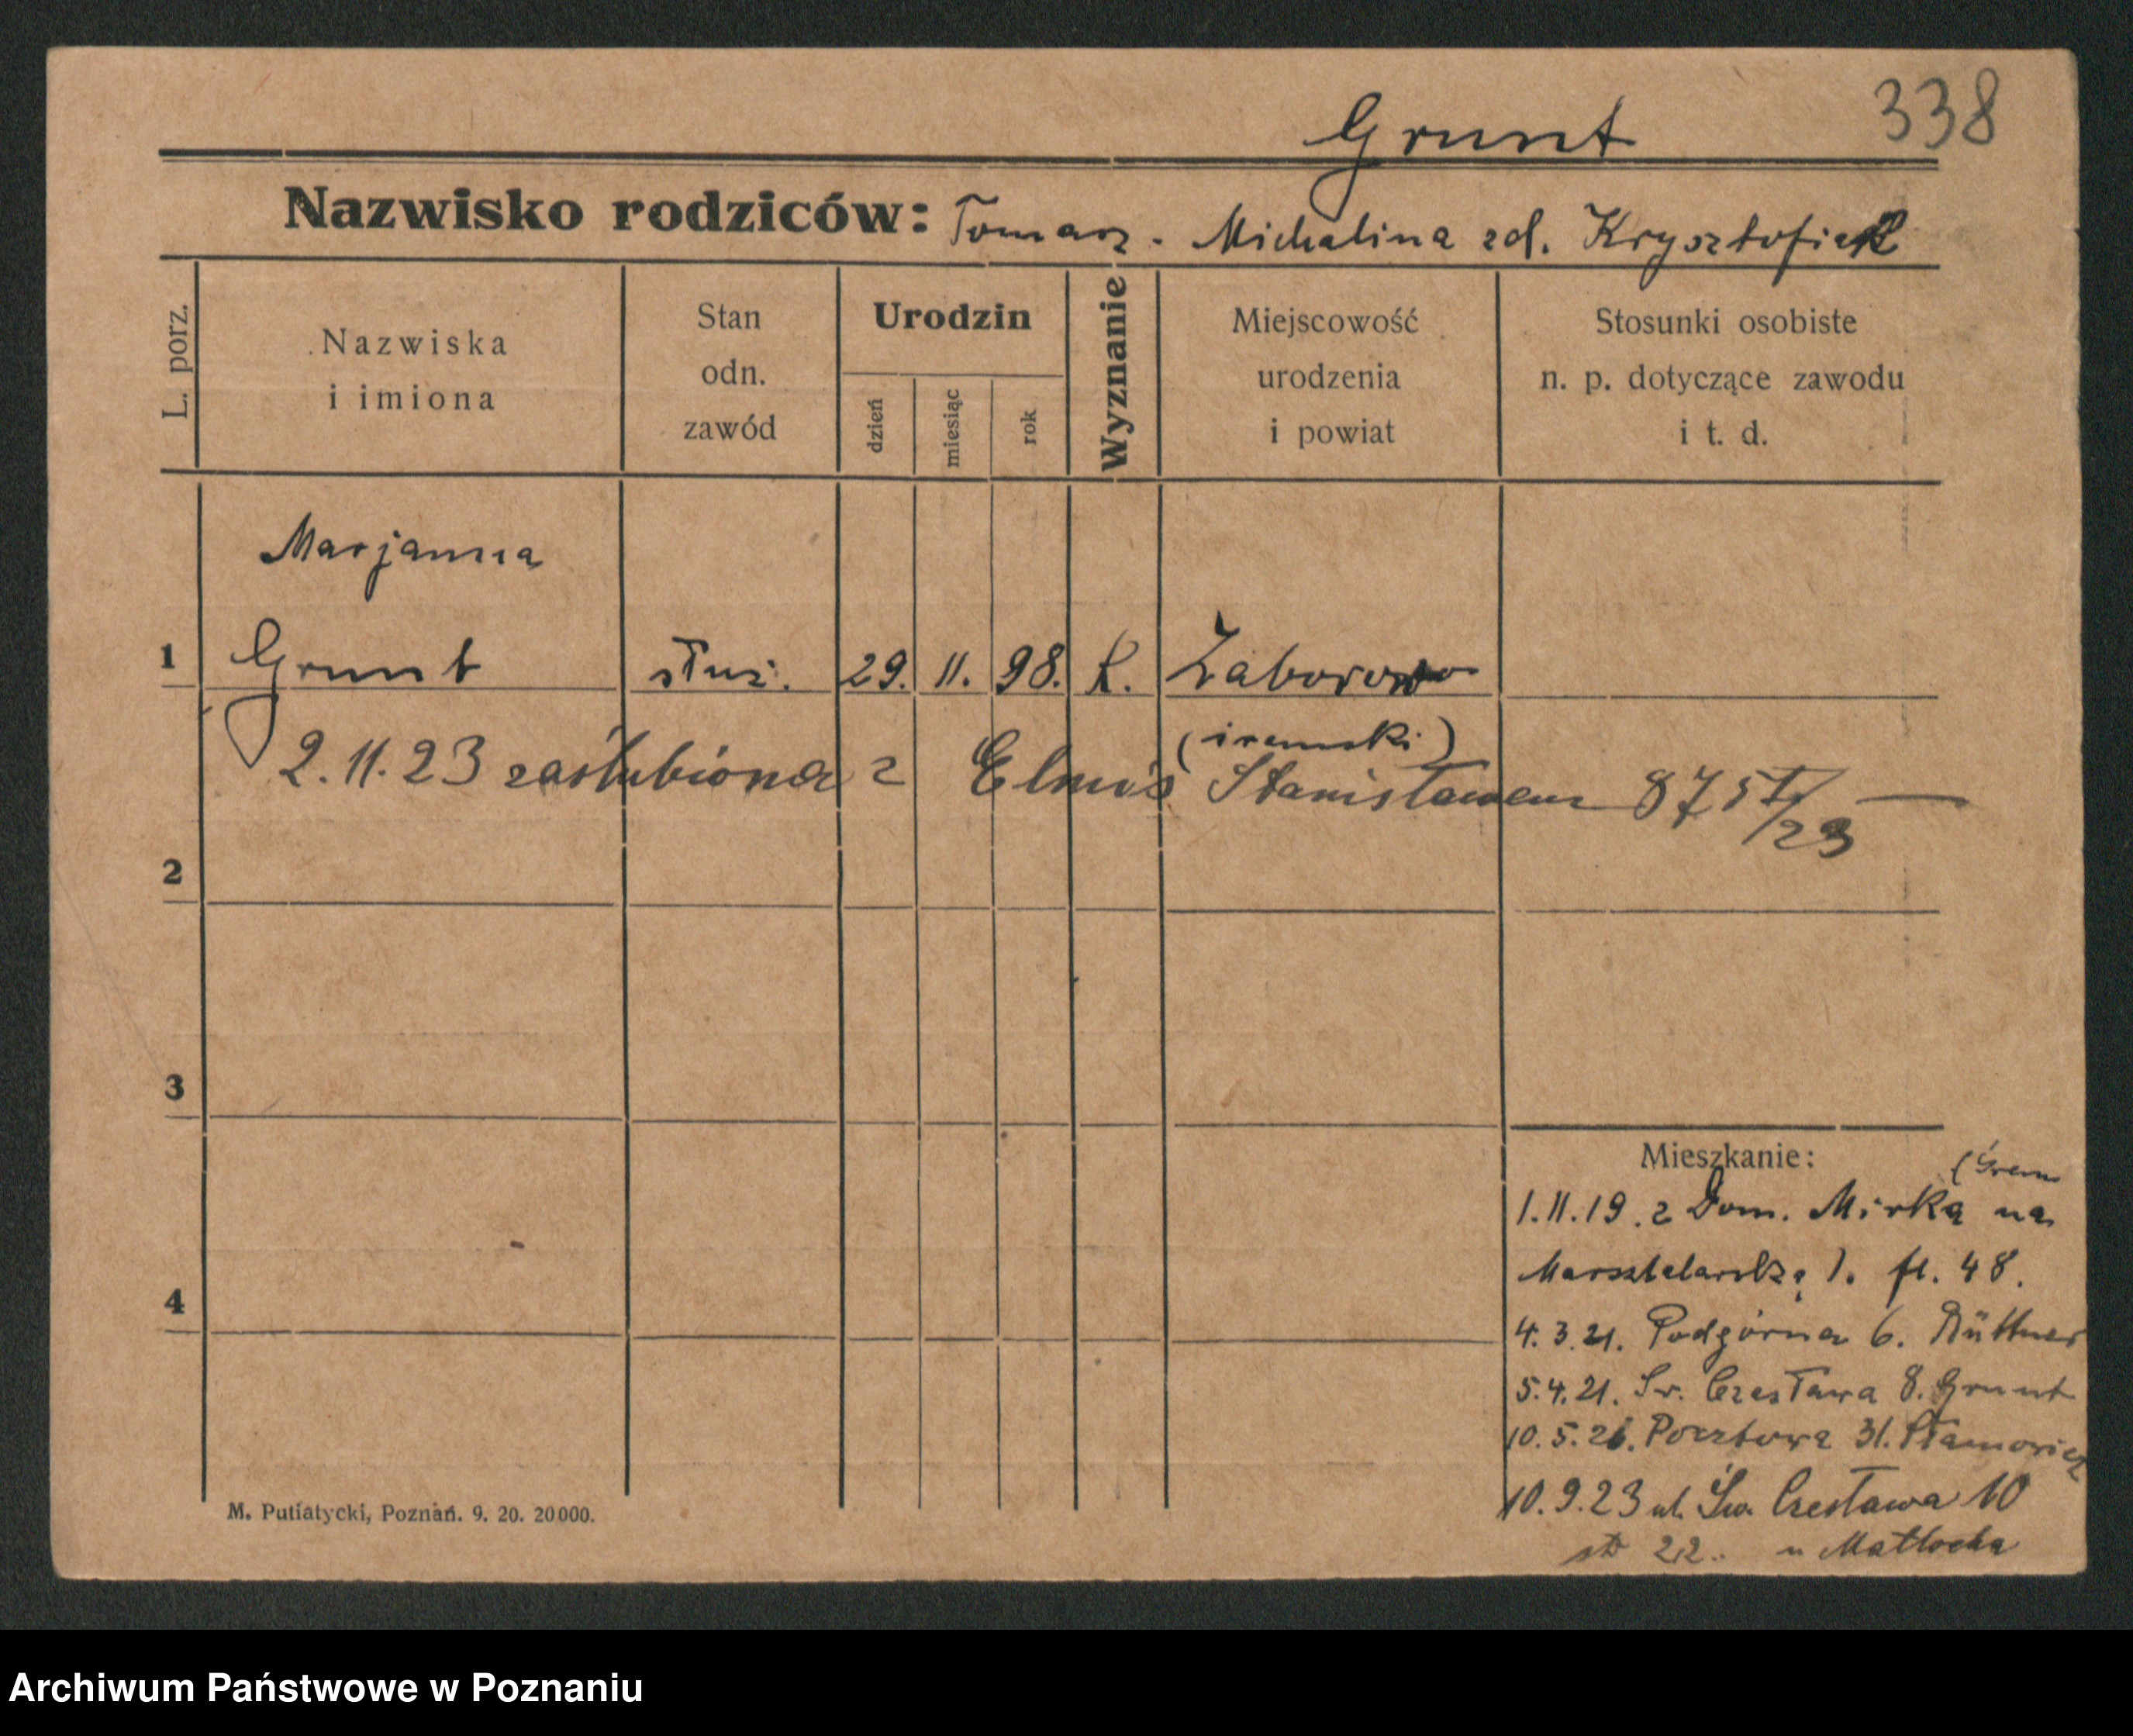 338
Grunt
Nazwisko rodziców: Tomasz - Michalina zd. Krysztofiak
L. porz.
Nazwiska
i imiona
Stan
odn.
zawód
Urodzin
dzień
miesiąc
rok
Wyznanie
Miejscowość
urodzenia
i powiat
Stosunki osobiste
n. p. dotyczące zawodu
i t. d.
Marjanna
1 Grunt służ. 29. 11. 98. k. Zaborowo
(śremski)
2.11.23 zaślubiona z Elmiś Stanisławem
23
2
3
4
Mieszkanie:
(Śrem
1.11.19. z Dom. Mirką na
Marsztalarską 1. fl. 48.
4.3.21. Podgórna 6. Büttner
5.4.21. Św. Czesława 8. Grunt
10.5.21. Pocztowa 31.
10.9.23 ul. Św. Czesława 10
22. u Matłocha
M. Putiatycki, Poznań. 9. 20. 20000.
Archiwum Państwowe w Poznaniu